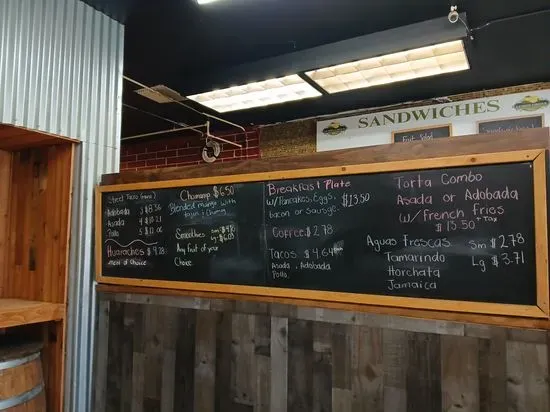 SANDWICHES
Street Tacos
Adobada
Asada
Pollo
Huaraches $9.28
meat of choice
Chamango $6.50
Blended mango with
tajin & Chamoy
Smoothies Sm
Lg
Any fruit of your
Choice
Breakfast Plate
w/Pancakes, Eggs,
bacon or Sausage $13.50
Coffee $2.78
Tacos $4.64
Asada, Adobada
Pollo
Torta Combo
Asada or Adobada
w/ French fries
$13.50 + Tax
Aguas Frescas Sm $2.78
Tamarindo Lg $3.71
Horchata
Jamaica